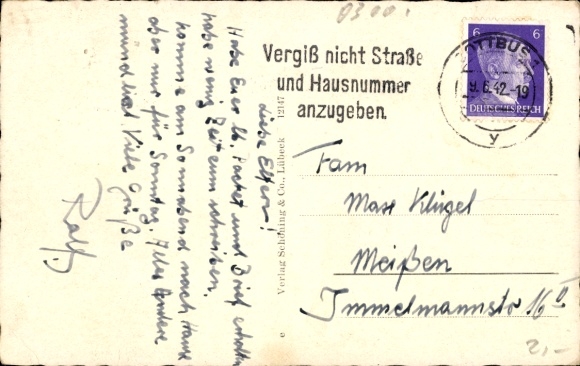 0300.
Vergiß nicht Straße
und Hausnummer
anzugeben.
COTTBUS 1
9.6.42.-19
y
6 6
DEUTSCHES REICH
Liebe Eltern!
Habe Euer lb. Packet und Brief erhalten
habe wenig Zeit zum schreiben.
komme am Sonnabend nach Hause
aber nur für Sonntag. Alles Andere
mündlich. Viele Grüße
Rolf.
e Verlag Schöning & Co., Lübeck 12147
Fam
Max Klügel
Meißen
Immelmannstr 16 II
2,-